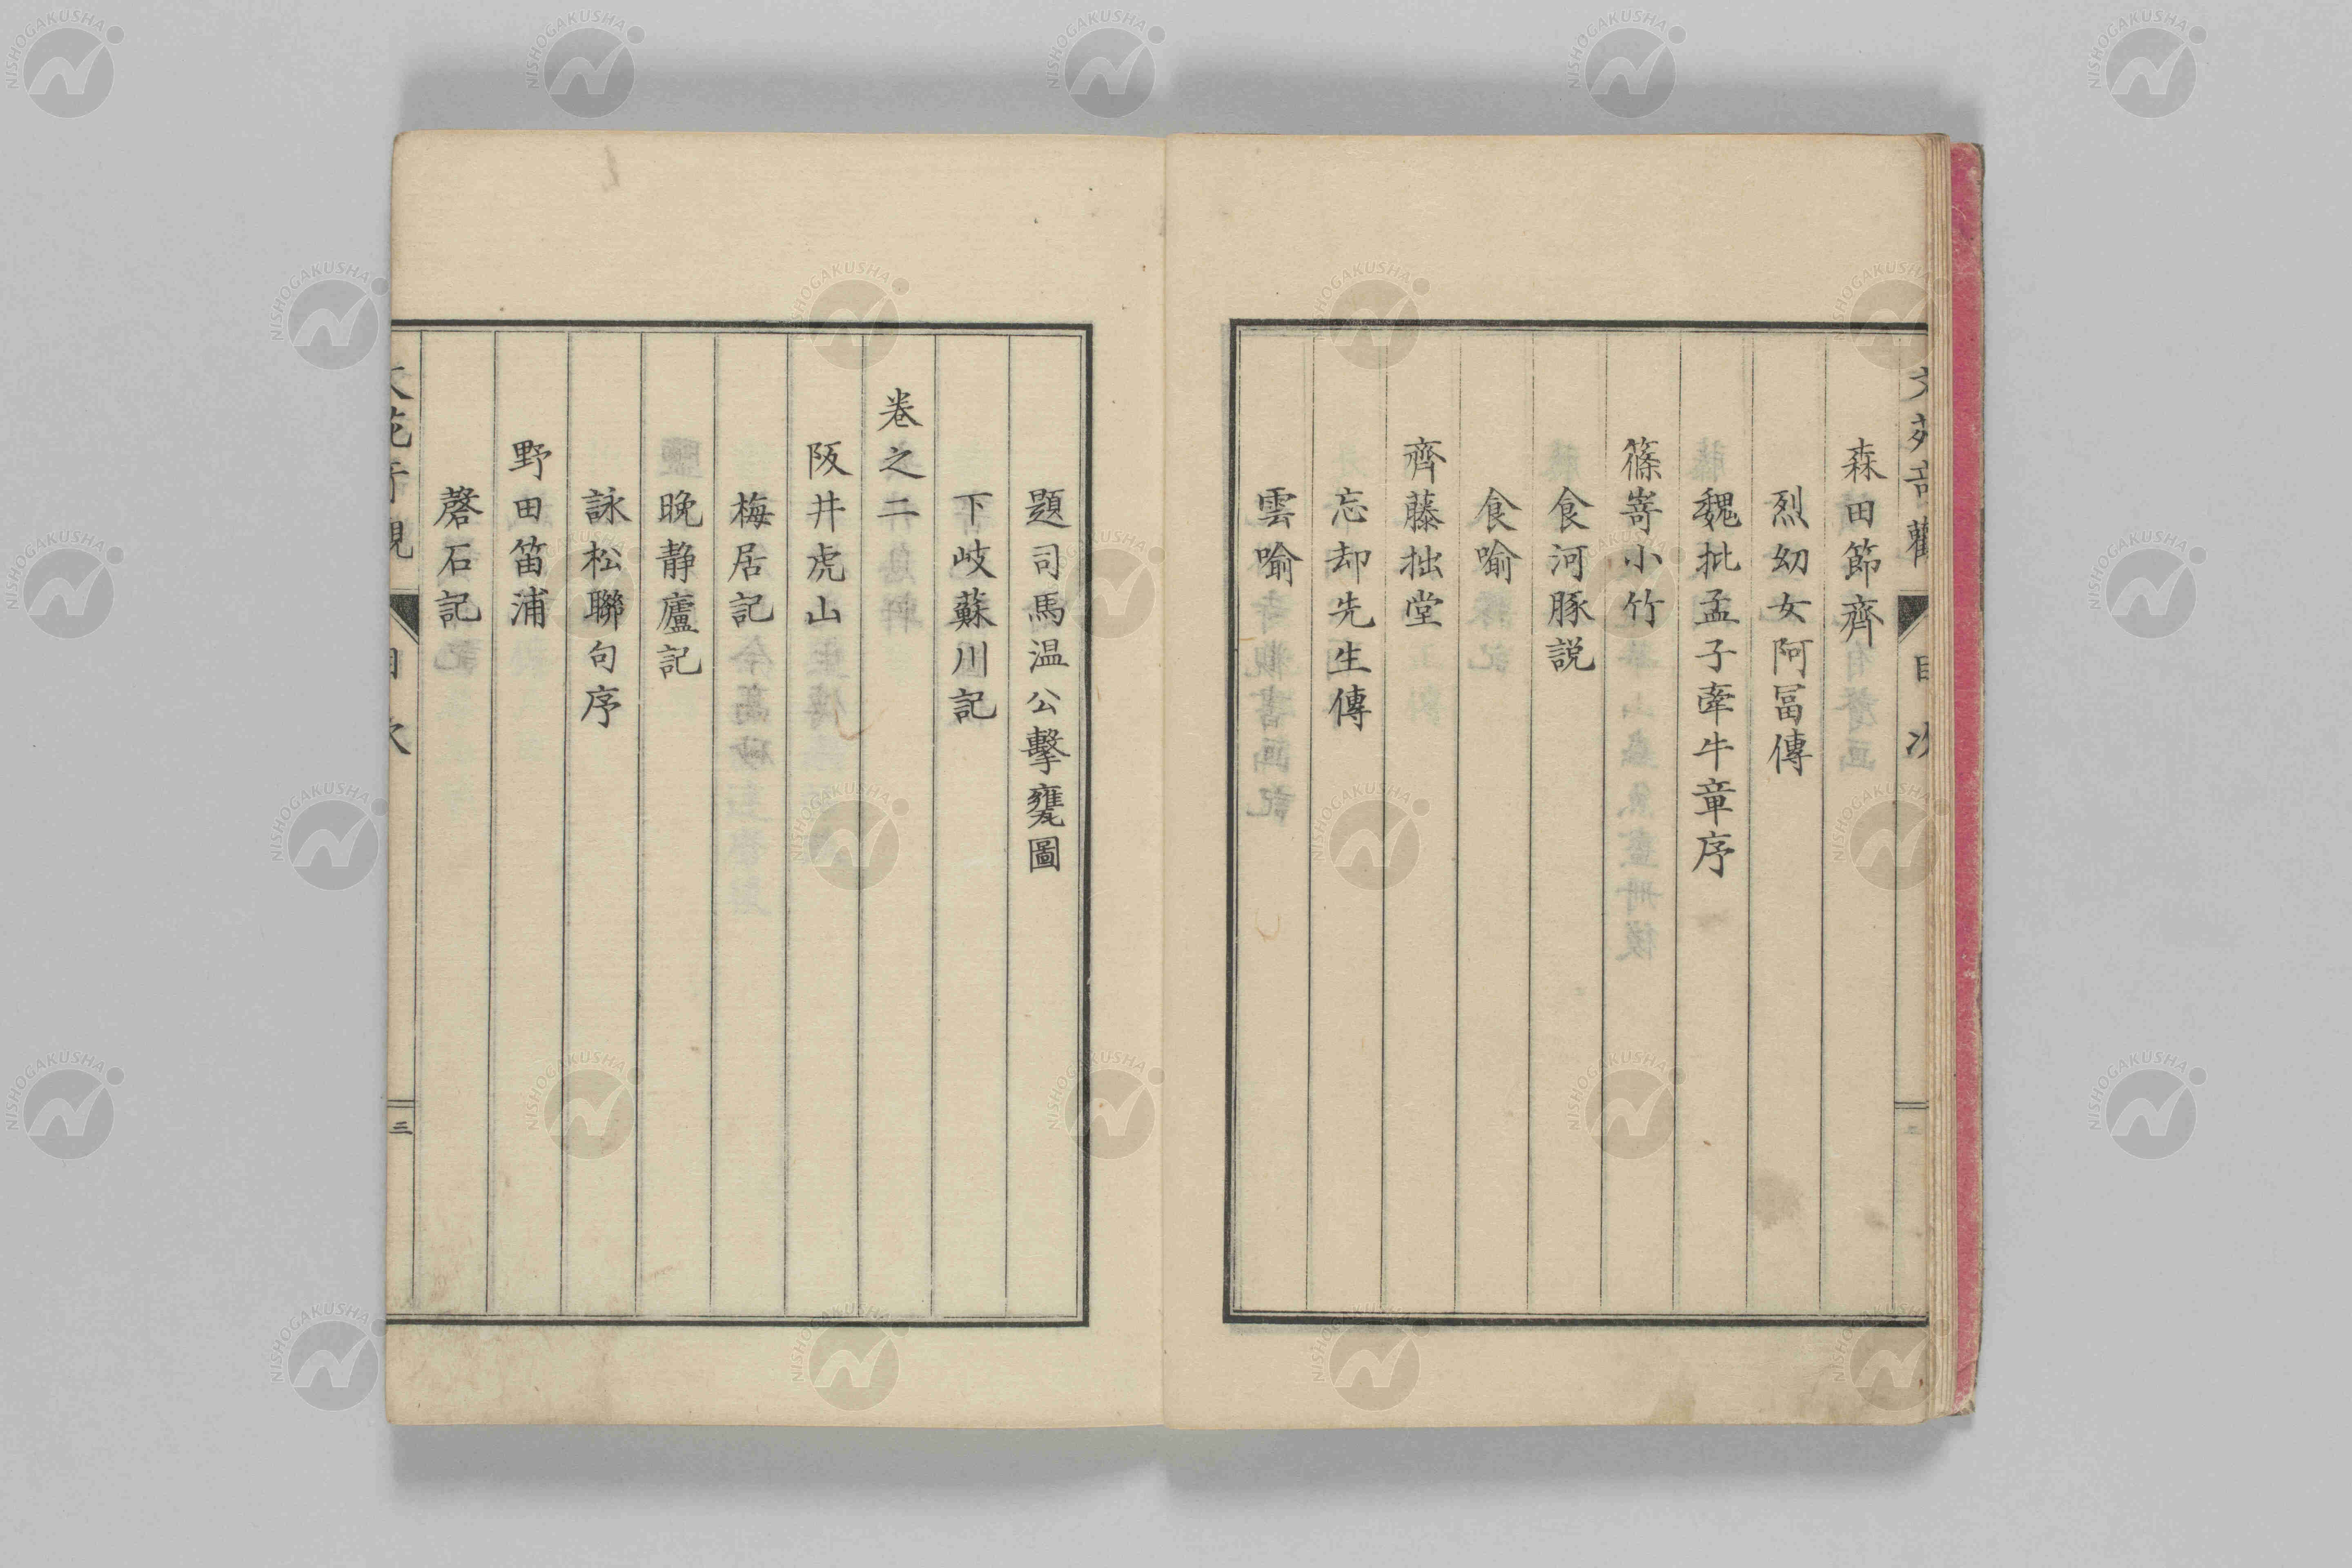 森田節齊
烈幼女阿冨傳
魏批孟子牽牛章序
篠嵜小竹
食河豚説
食喻
齊藤拙堂
忘却先生傳
雲喻
題司馬温公擊甕圖
下岐蘇川記
卷之二
阪井虎山
梅居記
晩静廬記
詠松聯句序
野田笛浦
磬石記
目次
三
NISHOGAKUSHA